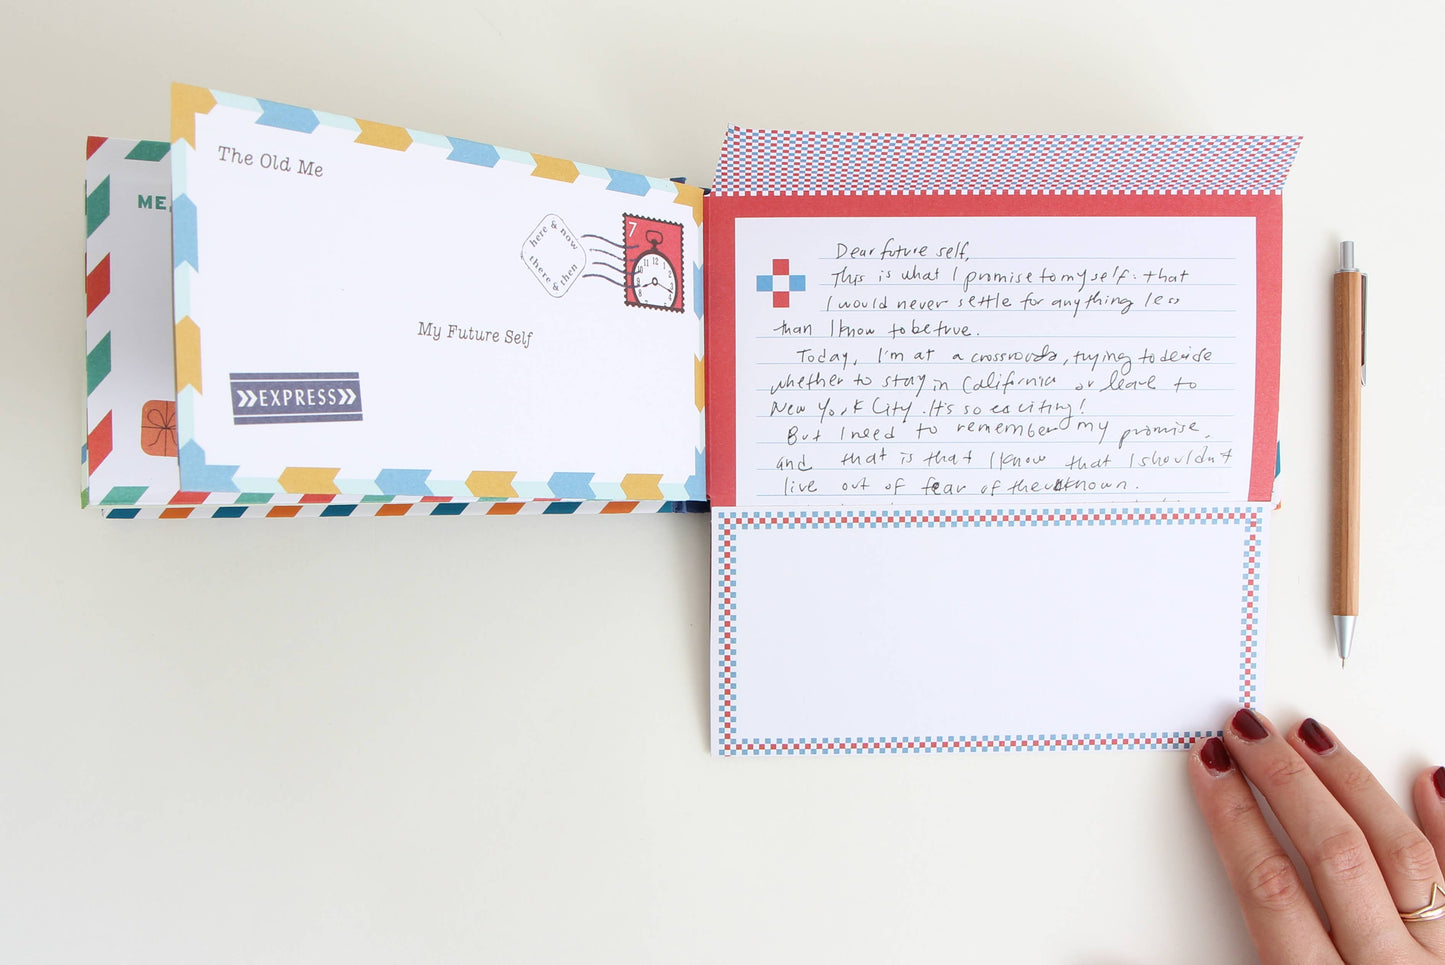 ME,
The Old Me
here & now
there & then
7
12
1
2
3
4
8
9
10
11
My Future Self
EXPRESS
Dear future self,
This is what I promise to myself: that
I would never settle for anything less
than I know to be true.
Today, I'm at a crossroads, trying to decide
whether to stay in California or leave to
New York City. It's so exciting!
But I need to remember my promise,
and that is that I know that I shouldn't
live out of fear of the unknown.